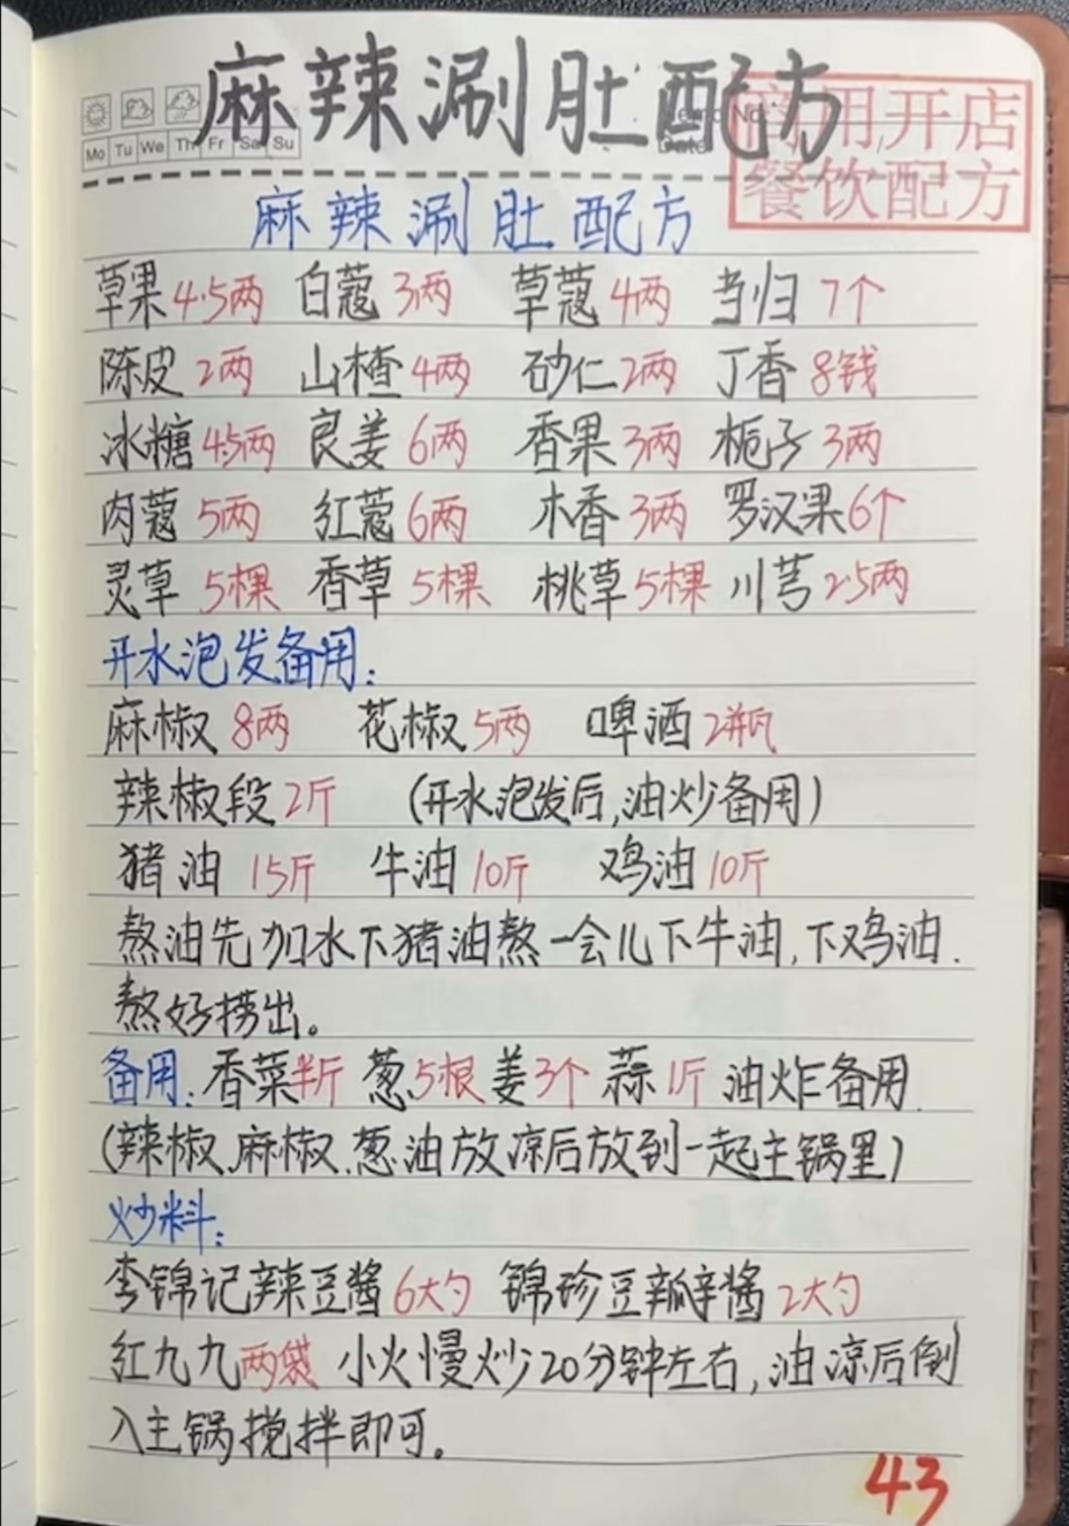 麻辣涮肚配方
Mo Tu We Th Fr Sa Su
商用开店
餐饮配方
麻辣涮肚配方
草果4.5两 白蔻3两 草蔻4两 当归7个
陈皮2两 山楂4两 砂仁2两 丁香8钱
冰糖4.5两 良姜6两 香果3两 栀子3两
肉蔻5两 红蔻6两 木香3两 罗汉果6个
灵草5棵 香草5棵 桃草5棵 川芎2.5两
开水泡发备用:
麻椒8两 花椒5两 啤酒2瓶
辣椒段2斤 (开水泡发后,油炒备用)
猪油15斤 牛油10斤 鸡油10斤
熬油先加水下猪油熬一会儿下牛油,下鸡油.
熬好捞出。
备用:香菜半斤 葱5根 姜3个 蒜1斤 油炸备用.
(辣椒、麻椒、葱油放凉后放到一起主锅里)
炒料:
李锦记辣豆酱6大勺 锦珍豆瓣酱2大勺
红九九两袋 小火慢炒20分钟左右,油凉后倒
入主锅搅拌即可。
43